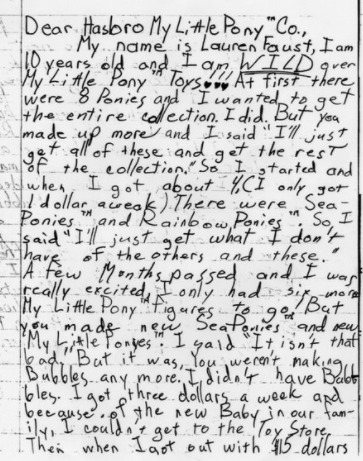 Dear Hasbro My Little Pony™ Co.,
My name is Lauren Faust, I am
10 years old and I am WILD over
My Little Pony™ Toys!!! At first there
were 8 Ponies and I wanted to get
the entire collection. I did. But you
made up more and I said "I'll just
get all of these and get the rest
of the collection." So I started and
when I got about 4(I only got
1 dollar a week) There were Sea-
Ponies™ and Rainbow Ponies™. So I
said "I'll just get what I don't
have of the others and these."
A few Months passed and I was
really excited, I only had six more
My Little Pony™ figures to go. But
you made new SeaPonies™ and new
"My Little Ponyes™. I said "It isn't that
bad" But it was, You weren't making
Bubbles any more. I didn't have Bub-
bles. I got three dollars a week and
because of the new Baby in our fam-
ily, I couldn't get to the Toy Store.
Then when I got out with $15 dollars